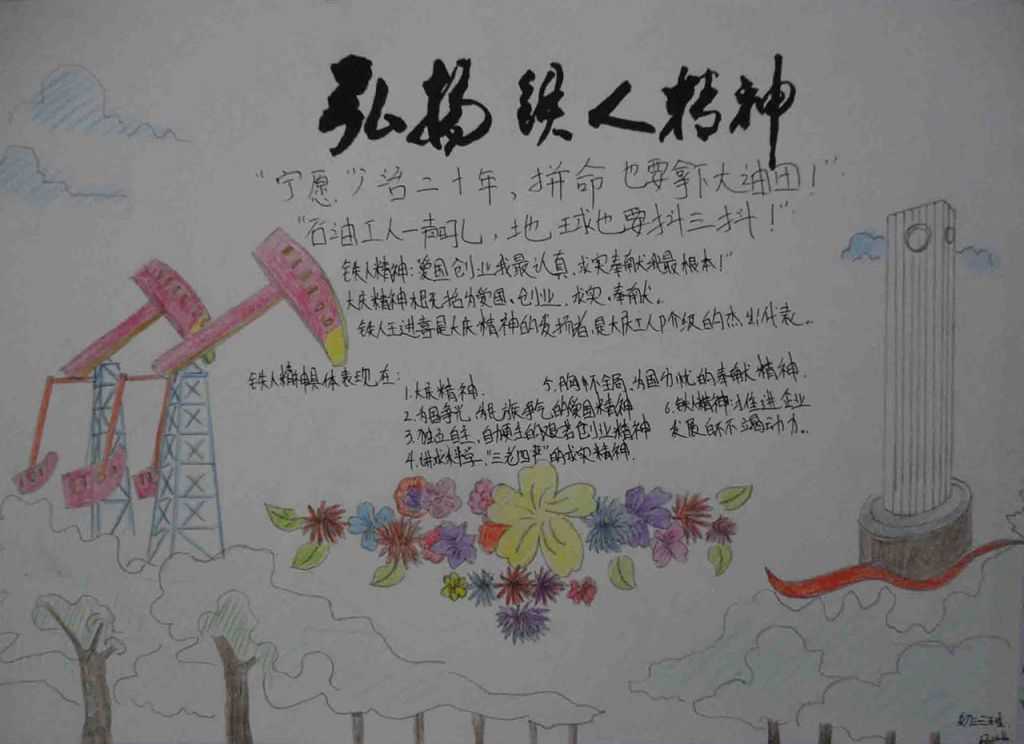 弘扬铁人精神
“宁愿少活二十年，拼命也要拿下大油田！”
“石油工人一声吼，地球也要抖三抖！”
铁人精神：爱国创业我最认真，求实奉献我最根本！”
大庆精神概括为爱国、创业、求实、奉献。
铁人王进喜是大庆精神的发扬者，是大庆工人阶级的杰出代表。
铁人精神具体表现在：
1.大庆精神．
2.为国争光、为民族争气的爱国精神
3.独立自主、自力更生的艰苦创业精神
4.讲求科学、“三老四严”的求实精神．
5.胸怀全局、为国分忧的奉献精神．
6.铁人精神推进企业
发展的不竭动力．